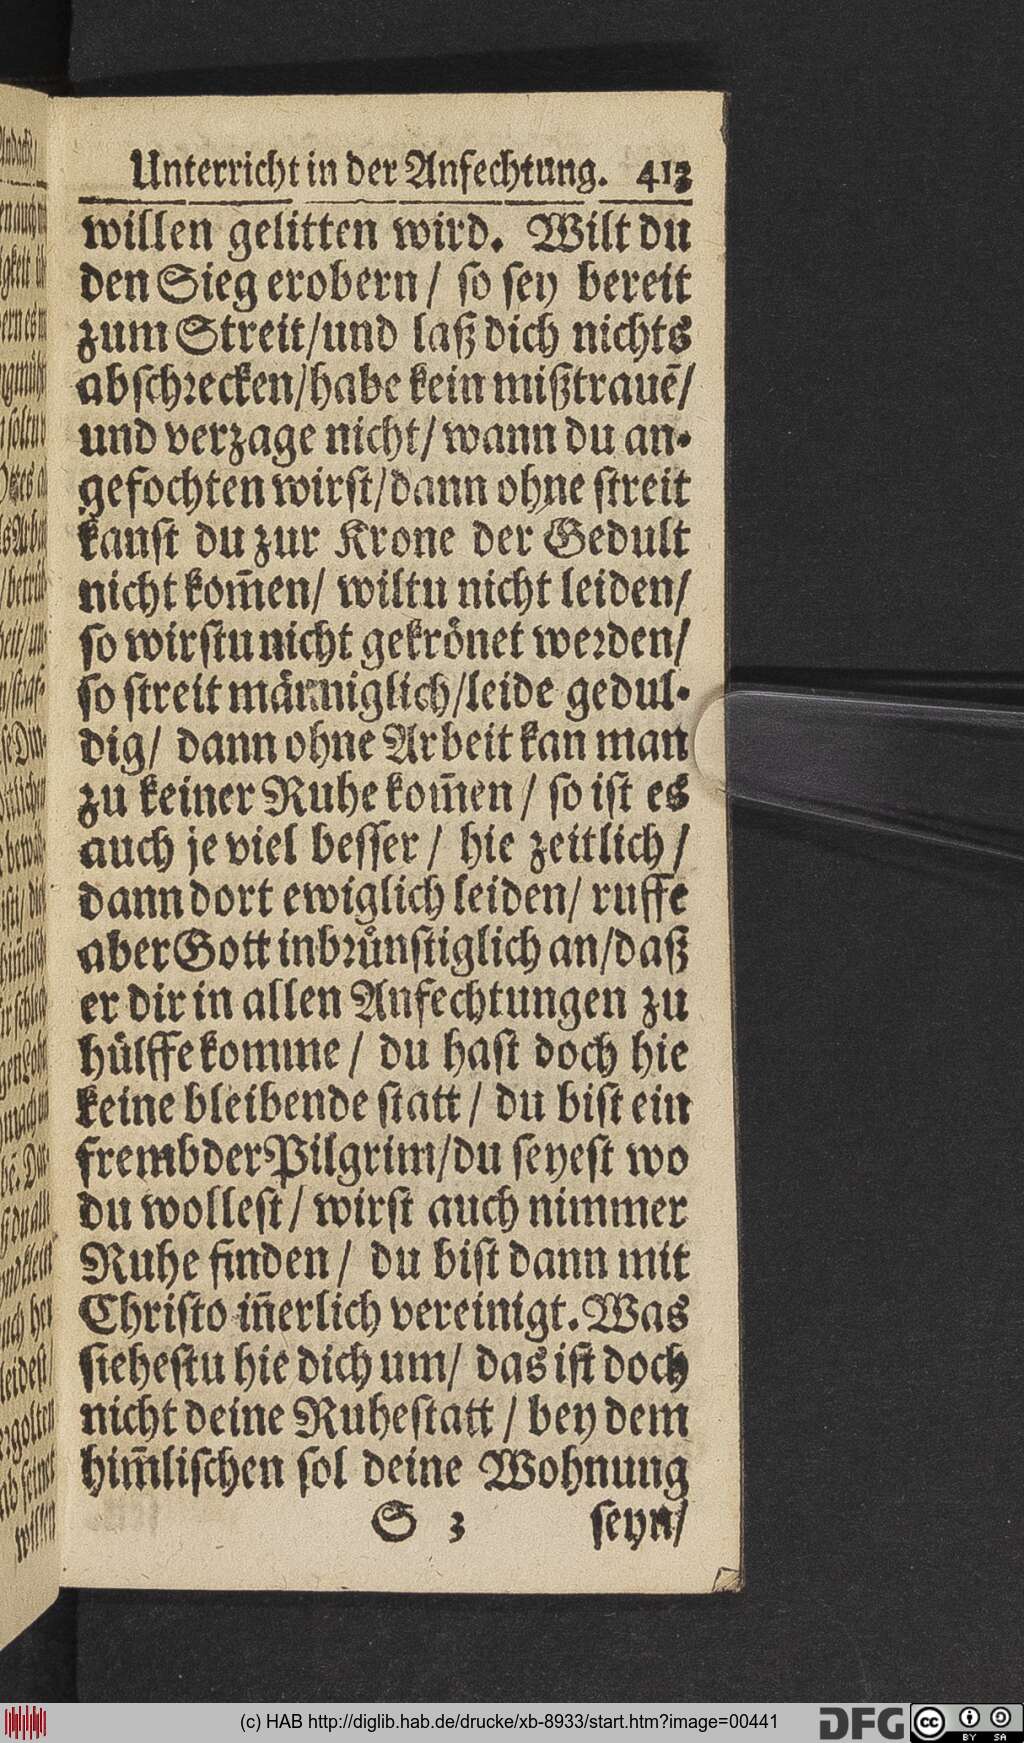 Unterricht in der Anfechtung. 413
willen gelitten wird. Wilt du
den Sieg erobern / so sey bereit
zum Streit/und laß dich nichts
abschꝛecken/habe kein mißtrauẽ/
und verzage nicht/ wann du an-
gefochten wirst/dann ohne streit
kanst du zur Krone der Gedult
nicht kom̃en/ wiltu nicht leiden/
so wirstu nicht gekroͤnet weꝛden/
so streit maͤnniglich/leide gedul-
dig/ dann ohne Arbeit kan man
zu keiner Ruhe kom̃en / so ist es
auch je viel besser / hie zeitlich /
dann dort ewiglich leiden/ ruffe
aber Gott inbꝛuͤnstiglich an/daß
er dir in allen Anfechtungen zu
huͤlffe komme / du hast doch hie
keine bleibende statt / du bist ein
frembder Pilgrim/du seyest wo
du wollest / wirst auch nimmer
Ruhe finden / du bist dann mit
Christo iñerlich vereinigt. Was
siehestu hie dich um/ das ist doch
nicht deine Ruhestatt / bey dem
him̃lischen sol deine Wohnung
S 3 seyn/
(c) HAB http://diglib.hab.de/drucke/xb-8933/start.htm?image=00441
DFG cc BY SA